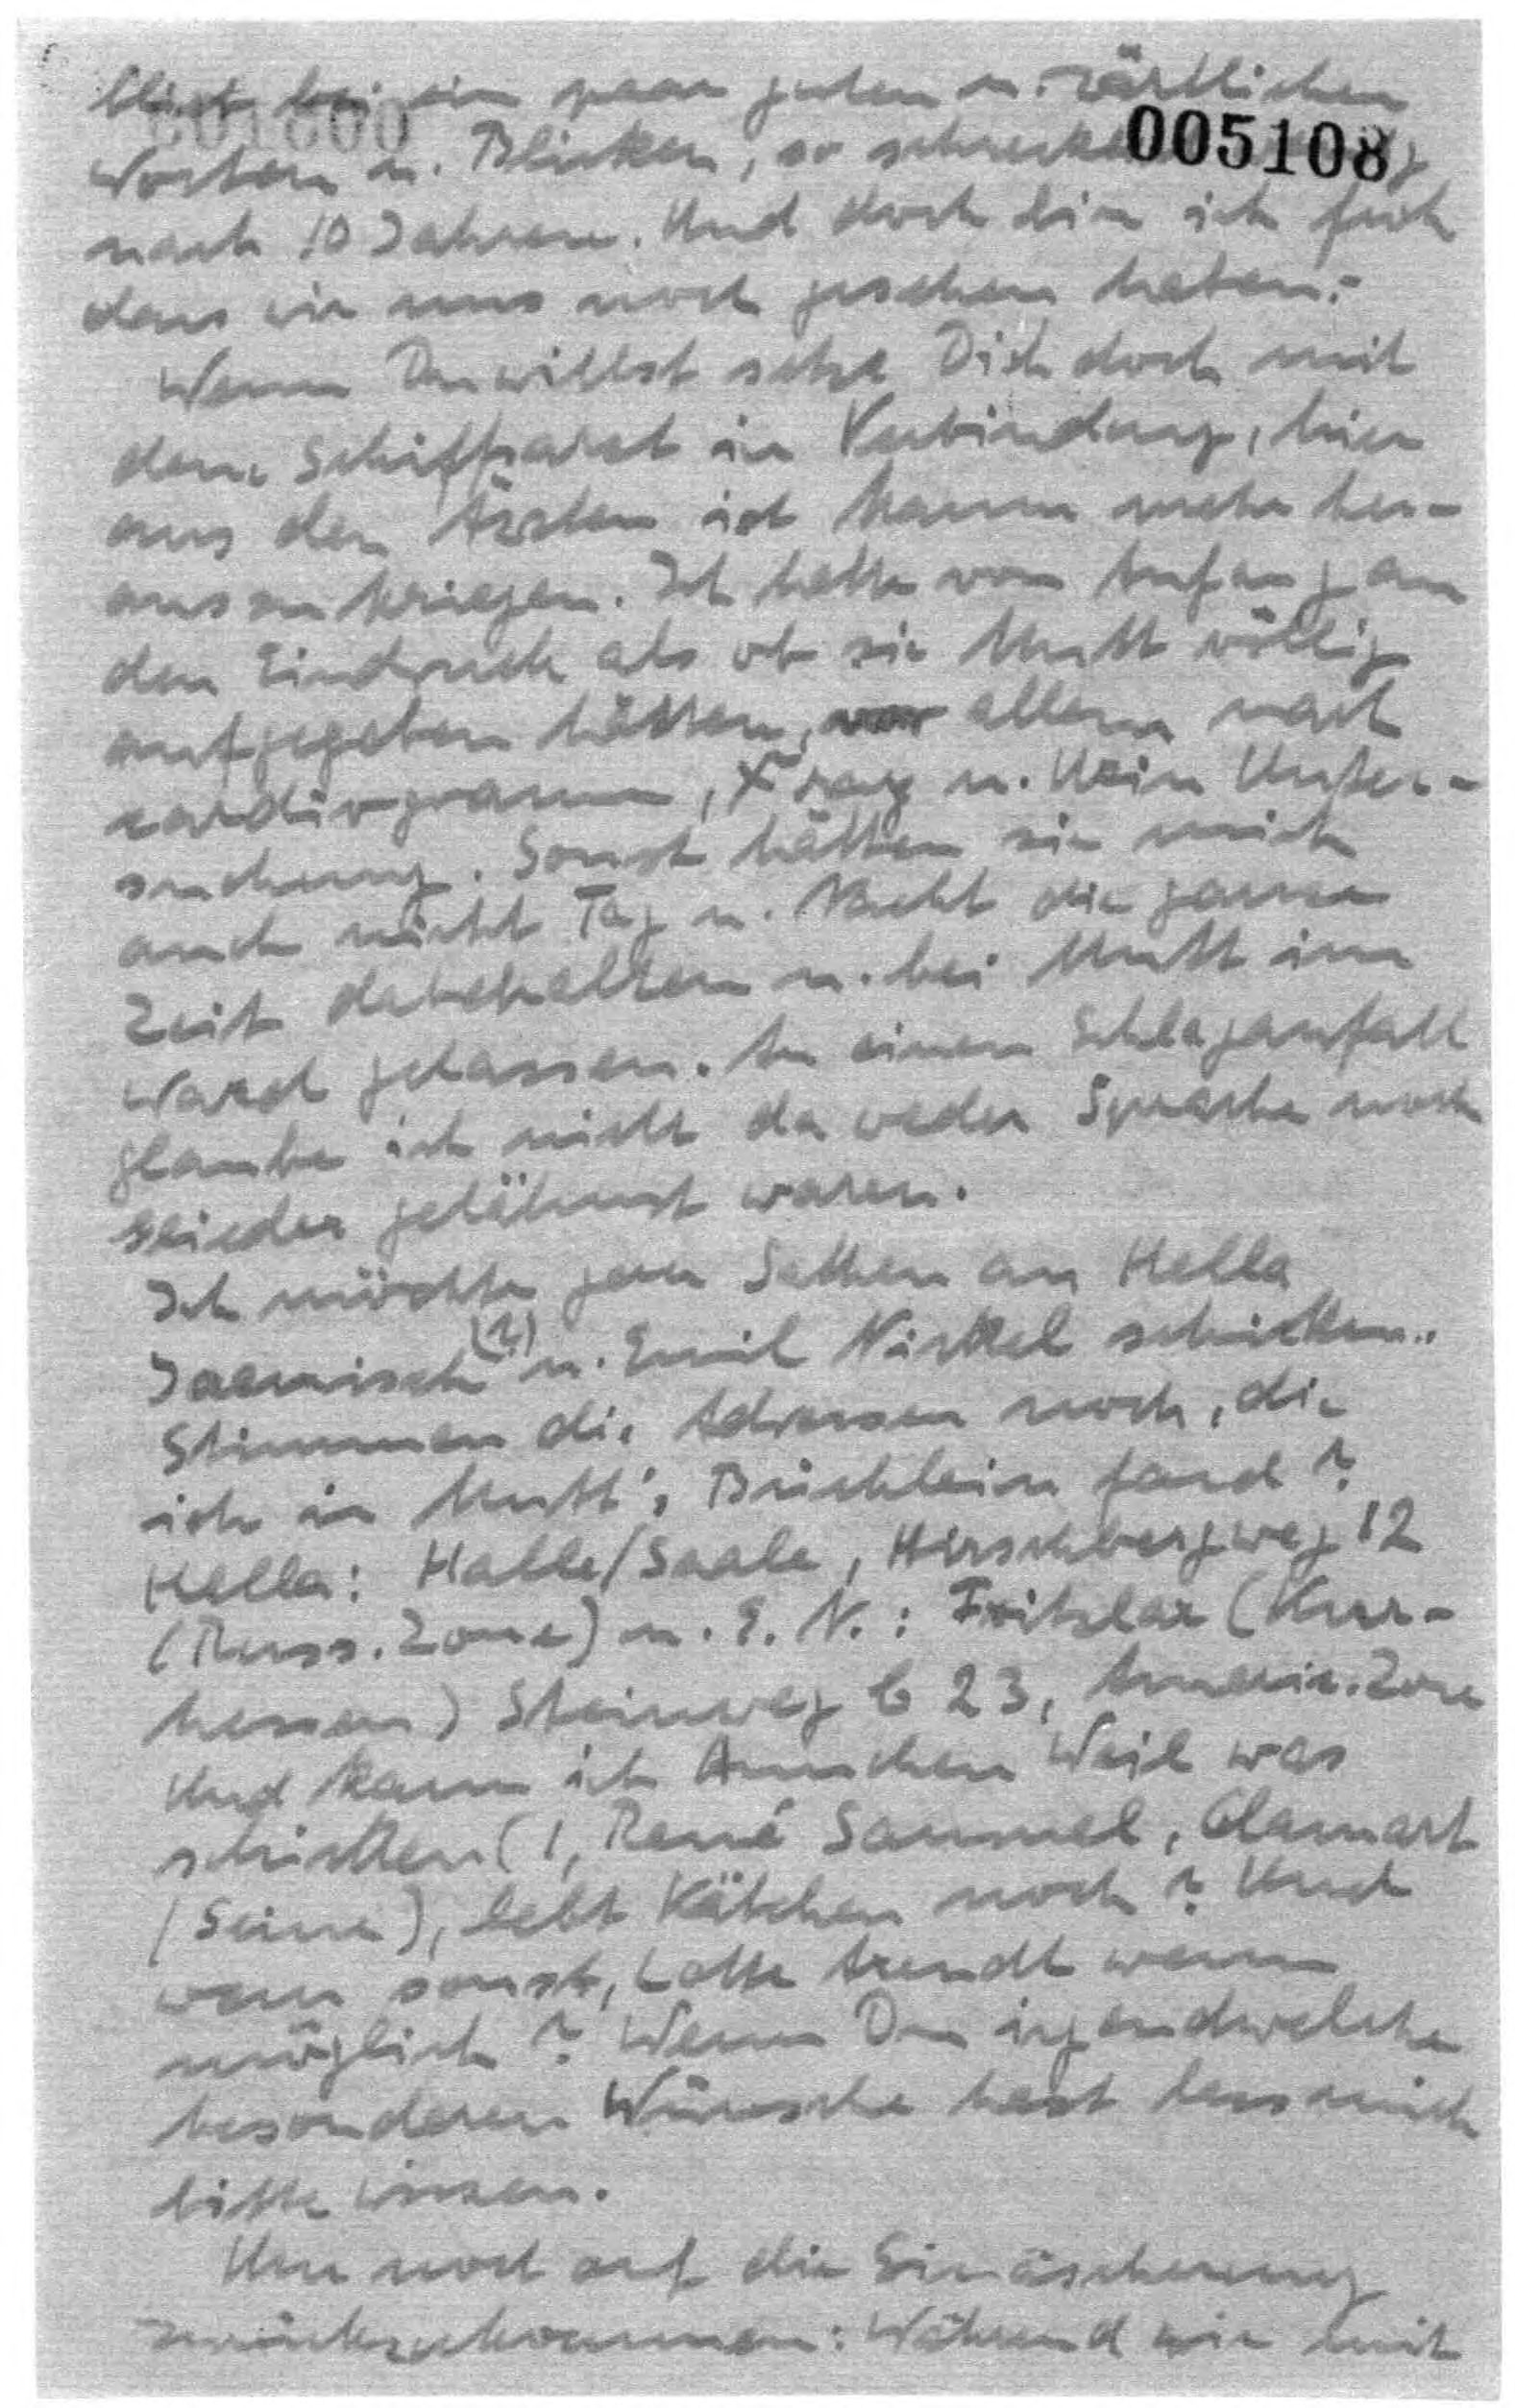 blieb bei ein paar guten u. zärtlichen
005108
Worten u. Blicken, so
nach 10 Jahren. Und doch bin ich froh
dass wir uns noch gesehen haben.-
Wenn Du willst setze Dich doch mit
dem Schiffsarzt in Verbindung, hier
aus den Ärzten ist kaum mehr her-
auszukriegen. Ich hatte von Anfang an
den Eindruck als ob sie Mutt völlig
aufgegeben hätten, vor allem nach
cardiogramm, Xray u. Urin Unter-
suchung. Sonst hätten sie mich
auch nicht Tag u. Nacht die ganze
Zeit dabehalten u. bei Mutt im
Ward gelassen. An einen Schlaganfall
glaube ich nicht da weder Sprache noch
Glieder gelähmt waren.
Ich möchte gern Sachen an Hella
Jaenisch (?) u. Emil Nickel schicken.
Stimmen die Adressen noch, die
ich in Mutt's Büchlein fand?
Hella: Halle/Saale, Hirschbergweg 12
(Russ. Zone) u. E. N.: Fritzlar (Kur-
hessen) Steinweg 6 23, Americ. Zone
Und kann ich Annchen Weil was
schicken (1, René Sammel, Clamart
/Seine), lebt Kätchen noch? Und
wem sonst, Lotte Arendt wenn
möglich? Wenn Du irgendwelche
besonderen Wünsche hast lass mich
bitte wissen.
Um noch auf die Einäscherung
zurückzukommen: Während wir mit